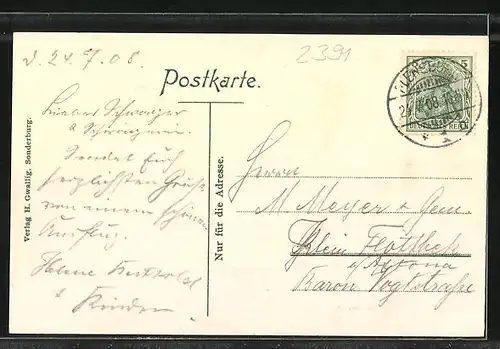 d. 24.7.08.
2391
Postkarte.
Lieber Schwager
& Schwägerin.
Sendet Euch
herzlichsten Grüße
von einem schönen
Ausflug.
Helene
& Kinder
Verlag H. Gwallig, Sonderburg.
Nur für die Adresse.
5
DEUTSCHES REICH
Herrn
M Meyer & Gem.
Klein Flottbek
b/Altona
Baron Vogtstraße